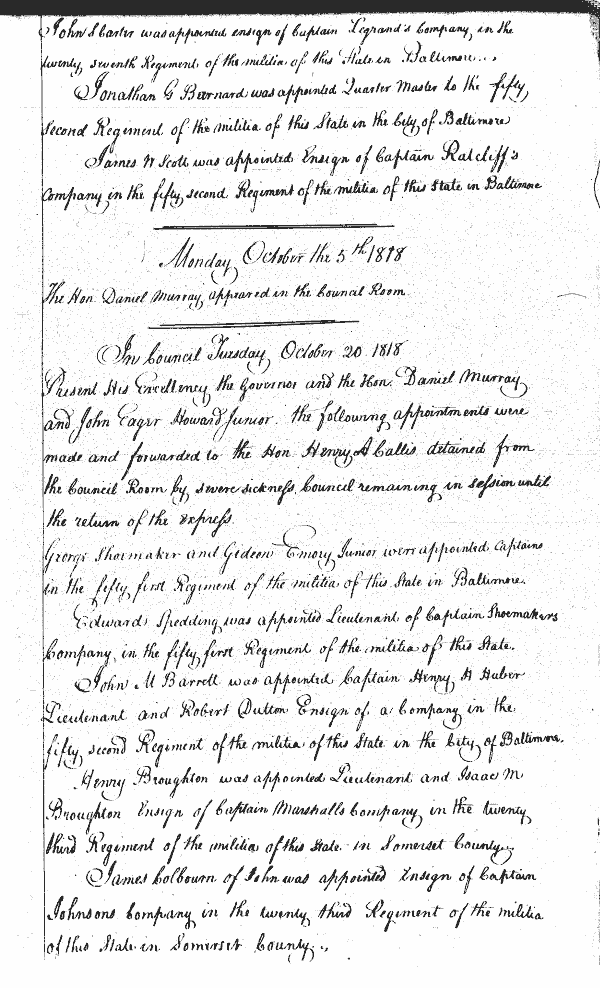 John S Carter was appointed ensign of Captain Legrand's Company, in the
twenty, seventh Regiment of the militia of this State in Baltimore...
Jonathan G Barnard was appointed Quarter Master to the fifty,
Second Regiment of the militia of this State in the City of Baltimore
James W Scott was appointed Ensign of Captain Ratcliff's
Company in the fifty second Regiment of the militia of this State in Baltimore
Monday October the 5th 1818
The Hon. Daniel Murray, appeared in the Council Room
In Council Tuesday October 20 1818
Present His Excellency the Governor and the Hon. Daniel Murray
and John Eager Howard Junior. the following appointments were
made and forwarded to the Hon Henry A Callis detained from
the Council Room by severe sickness, Council remaining in session until
the return of the express.
George Shoemaker and Gideon Emory Junior were appointed Captains
in the fifty first Regiment of the militia of this State in Baltimore.
Edward Spedding was appointed Lieutenant of Captain Shoemakers
Company, in the fifty first Regiment of the militia of this State.
John M Barrett was appointed Captain Henry H Huber
Lieutenant and Robert Dutton Ensign of a Company in the
fifty second Regiment of the militia of this State in the City of Baltimore.
Henry Broughton was appointed Lieutenant and Isaac M
Broughton Ensign of Captain Marshalls Company in the twenty
third Regiment of the militia of this State in Somerset County.
James Colbourn of John was appointed Ensign of Captain
Johnsons Company in the twenty third Regiment of the militia
of this State in Somerset County.,